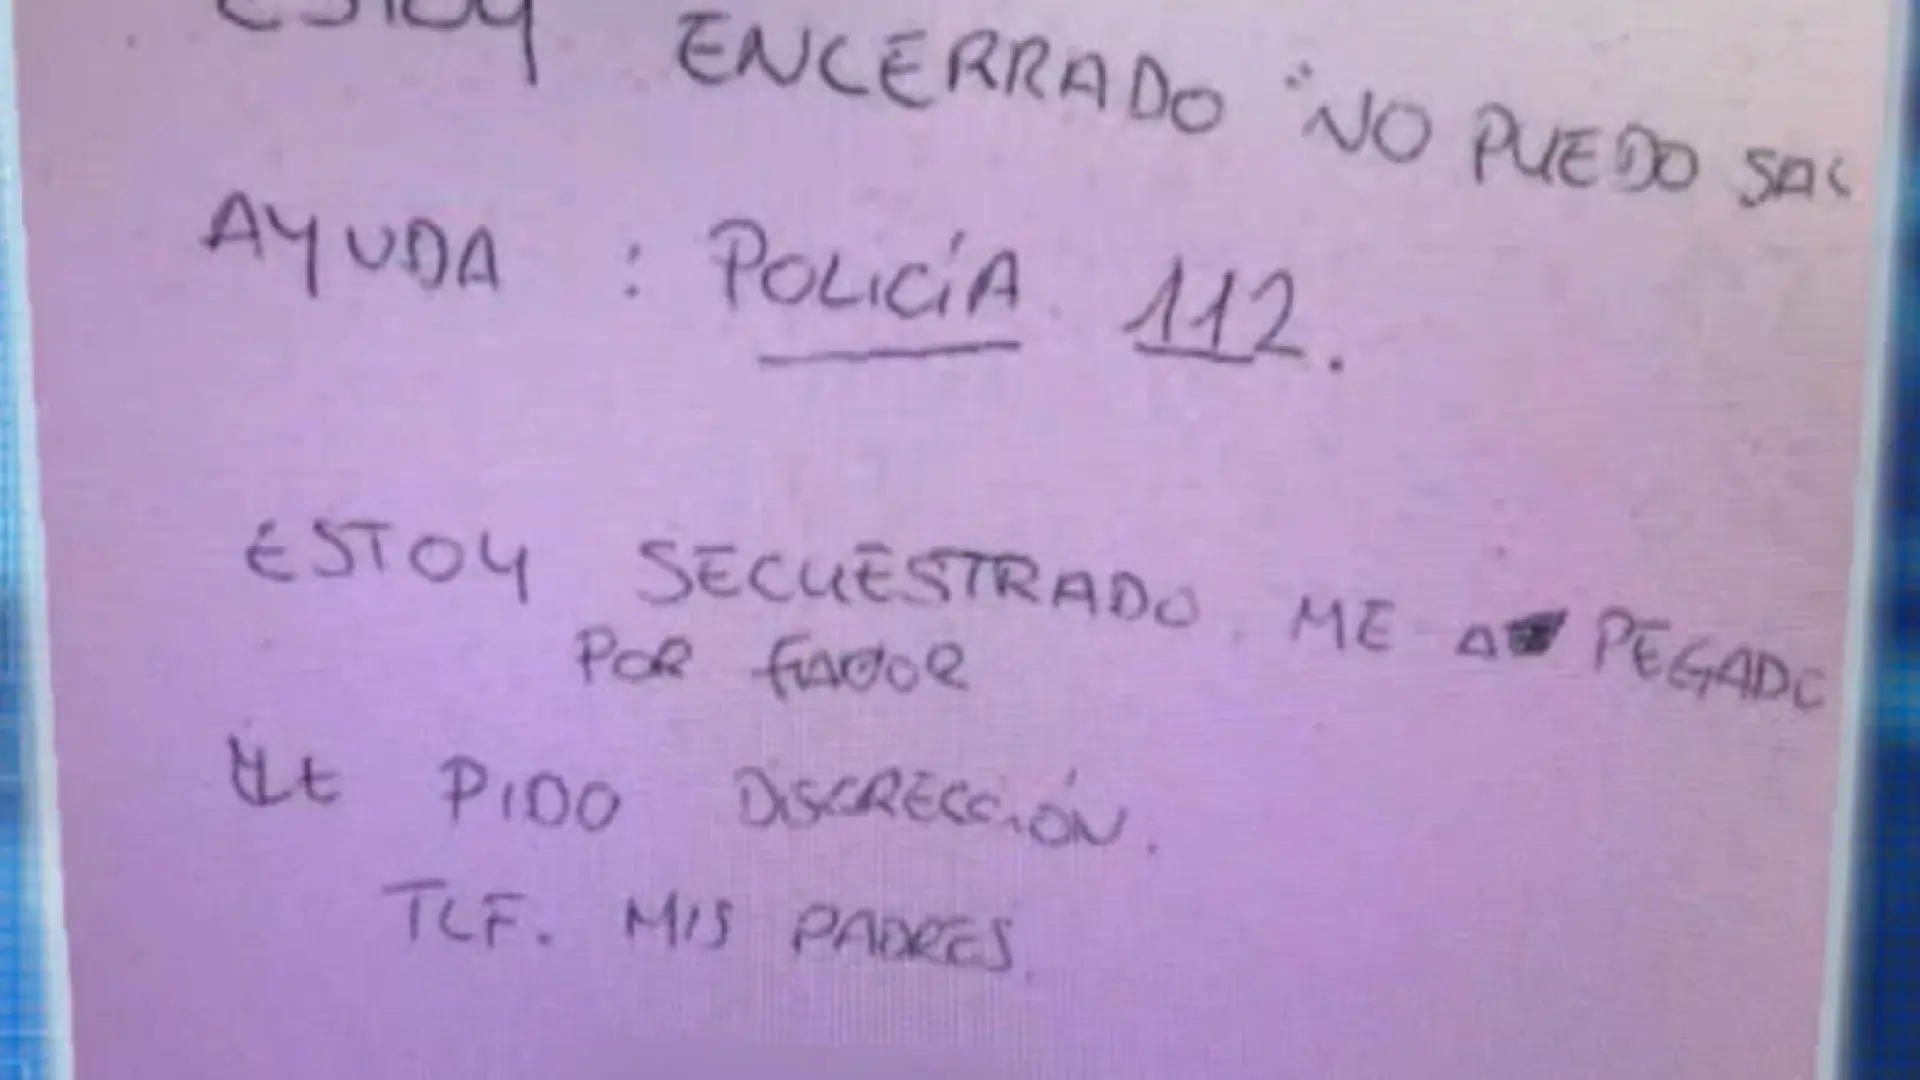 ESTOY ENCERRADO "NO PUEDO SAL
AYUDA : POLICÍA 112.
ESTOY SECUESTRADO. ME A PEGADO
POR FAVOR
LE PIDO DISCRECCIÓN.
TLF. MIS PADRES.